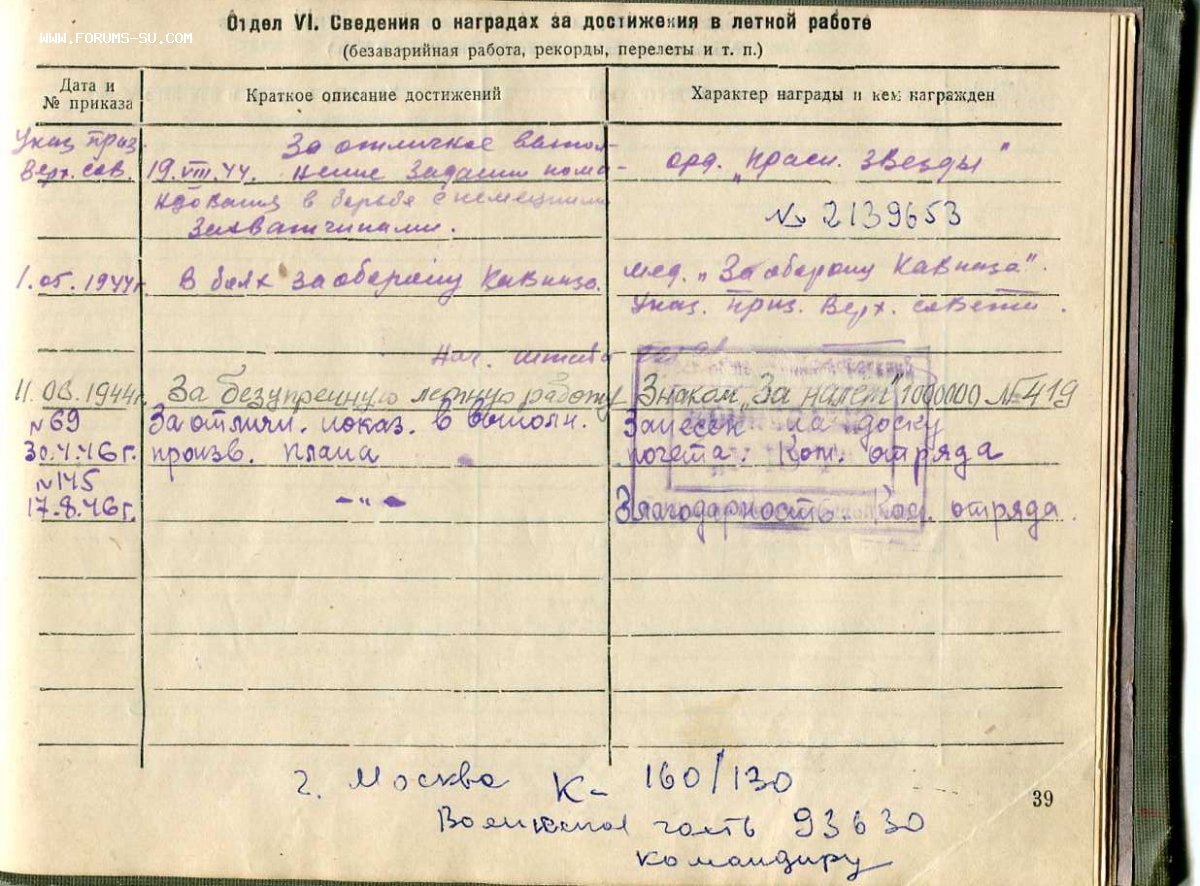 Отдел VI. Сведения о наградах за достижения в летной работе
WWW.FORUMS-SU.COM
(безаварийная работа, рекорды, перелеты и т. п.)
Дата и № приказа
Краткое описание достижений
Характер награды и кем награжден
Указ През. За отличное выпол-
Верх. сов. 19.VIII.44. нение задании кома- орд. „Красн. Звезды"
ндования в борьбе с немецкими № 2139653
захватчиками.
1.05.1944г. В боях за оборону Кавказа. мед. „За оборону Кавказа".
Указ. През. Верх. совета.
Нач. штаба
11.03.1944г. За безупречную летную работу Знаком „За налет" 1000000 № 419
№ 69 За отличн. показ. в выполн. Занесен на доску
30.4.46г. произв. плана почета. Ком. отряда
№ 145
17.8.46г. -"- Благодарность. Ком. отряда.
г. Москва К- 160/130
39
Воинская часть 93630
командиру